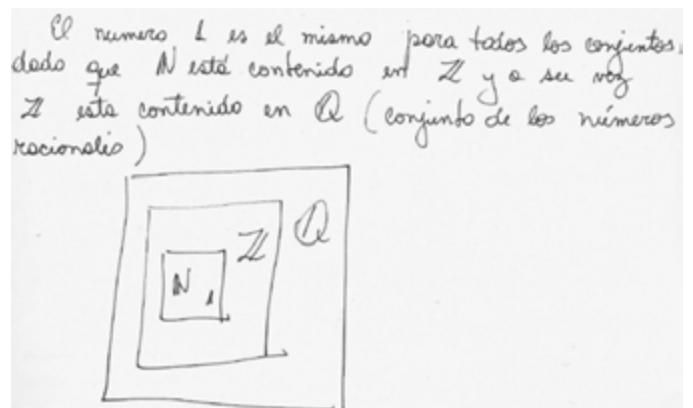 El numero 1 es el mismo para todos los conjuntos,
dado que ℕ está contenido en ℤ y a su vez
ℤ esta contenido en ℚ (conjunto de los números
racionales)
ℤ ℚ
ℕ 1